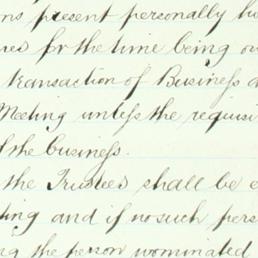 ns present personally ho
res for the time being ow
transaction of Business a
Meeting unless the requisi
f the business.
the Trustees shall be e
ting and if no such pers
ng the person nominated